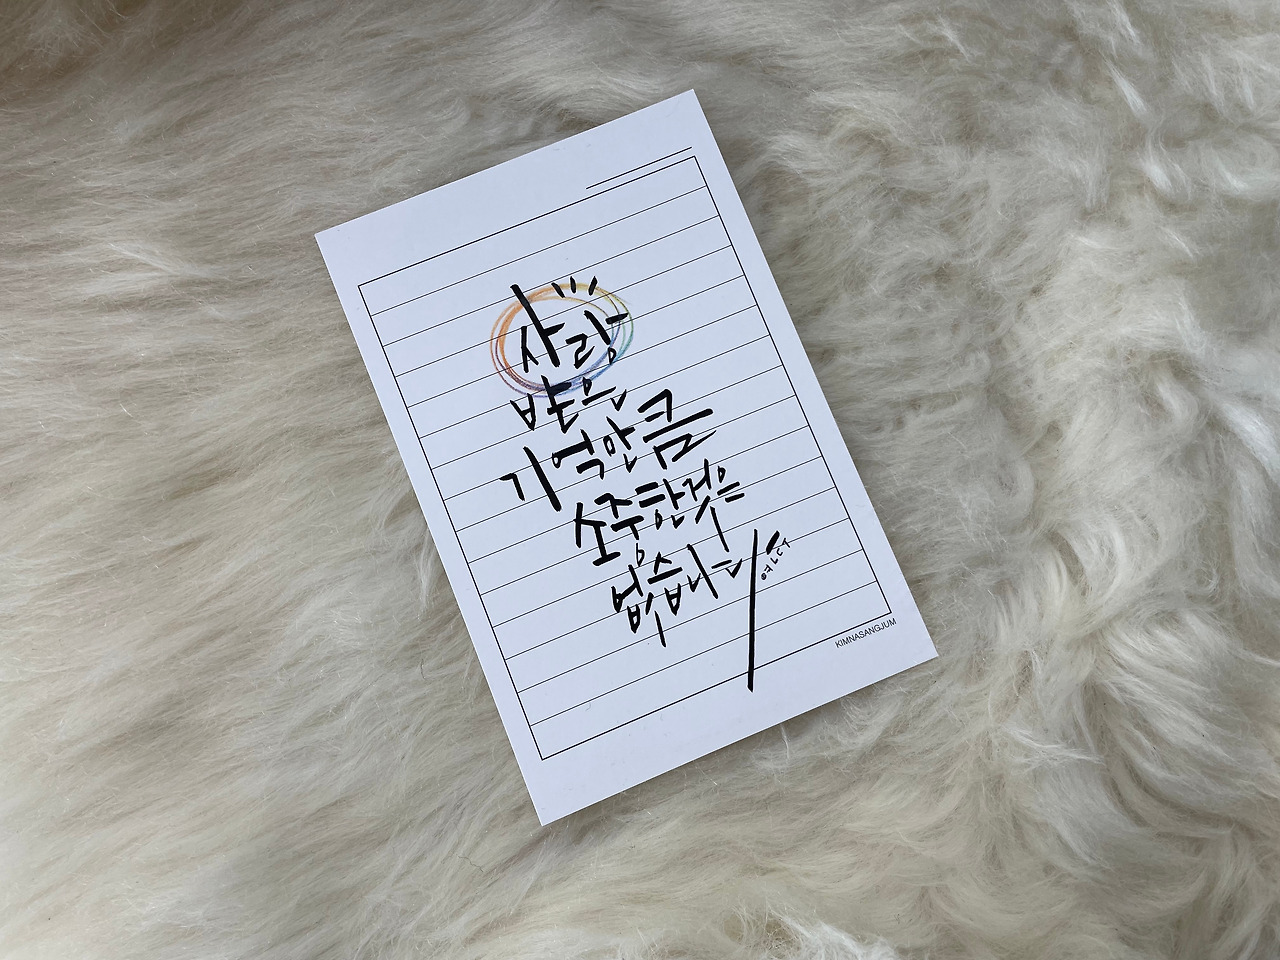 사랑
받은
기억만큼
소중한것은
없습니다
KIMNASANGJUM